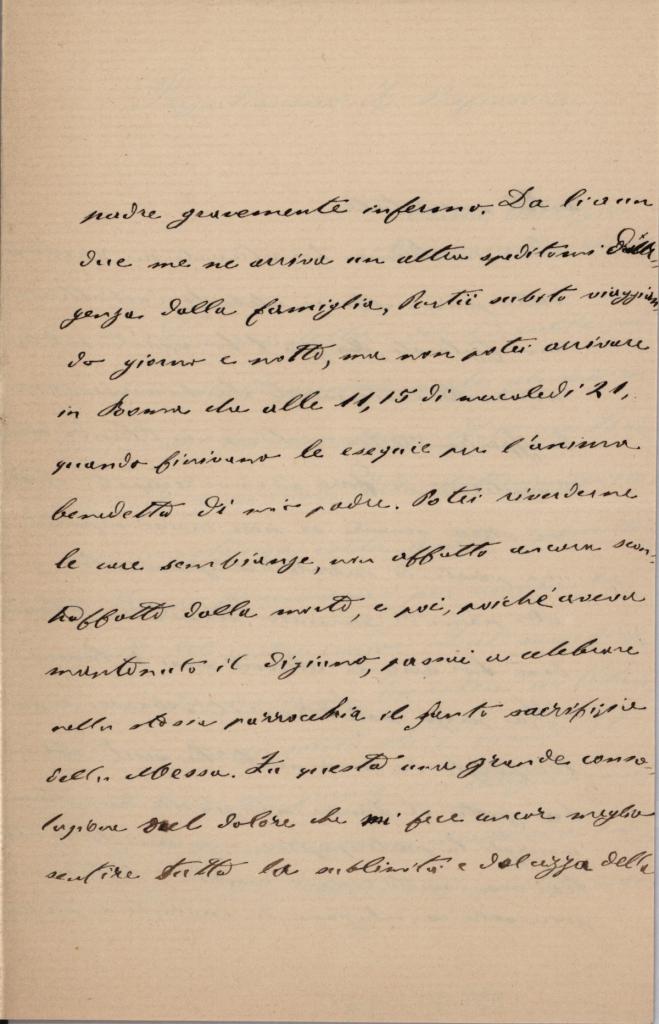 padre gravemente infermo. Da lì a un
due me ne arriva un altro speditomi
genza dalla famiglia, Partii subito viaggian
do giorno e notte, ma non potei arrivare
in Roma che alle 11,15 di mercoledì 21,
quando finivano le esequie per l'anima
benedetta di mio padre. Potei rivederne
le care sembianze, non affatto ancora scon-
traffatte dalla morte, e poi, poiché aveva
mantenuto il digiuno, passai a celebrare
nella stessa parrocchia il santo sacrifizio
della Messa. Fu questa una grande conso-
lazione nel dolore che mi fece ancor meglio
sentire tutta la sublimità e dolcezza della